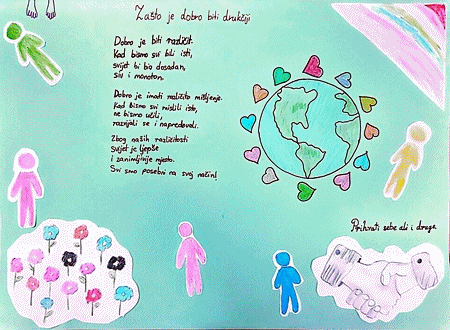 Zašto je dobro biti drukčiji
Dobro je biti različit.
Kad bismo svi bili isti,
svijet bi bio dosadan,
siv i monoton.
Dobro je imati različito mišljenje.
Kad bismo svi mislili isto,
ne bismo učili,
razvijali se i napredovali.
Zbog naših različitosti
svijet je ljepše
i zanimljivije mjesto.
Svi smo posebni na svoj način!
Prihvati sebe ali i druge.